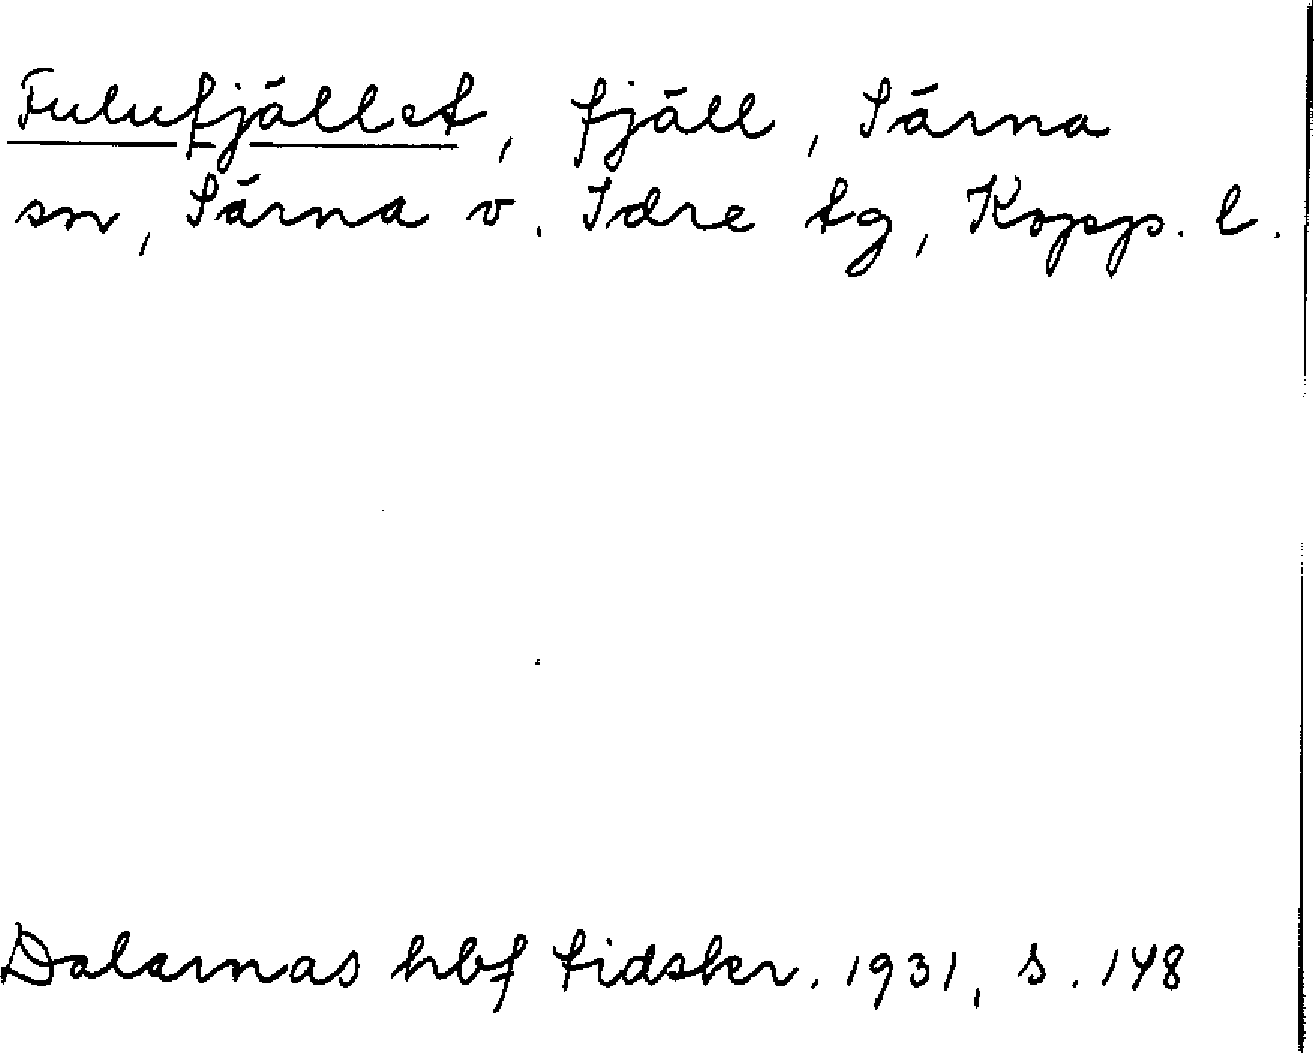 Fulufjället, fjäll, Särna
sn, Särna o. Idre tg, Kopp. l.
Dalarnas hbf tidskr. 1931, s. 148